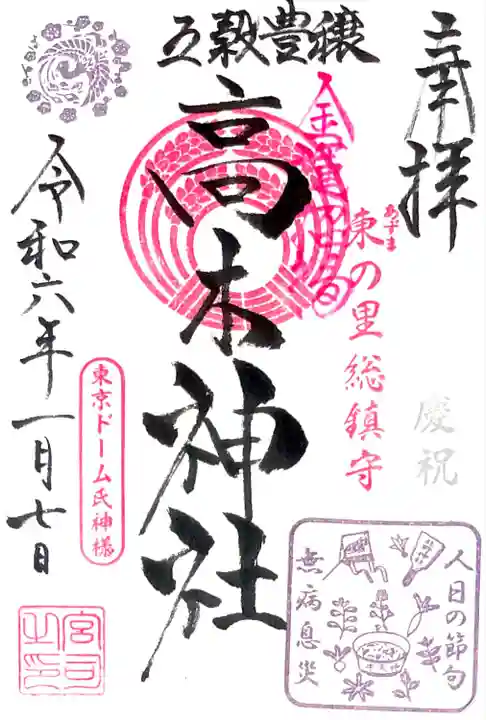 奉拝
慶祝
東の里総鎮守
あずま
五穀豊穣
高木神社
東京ドーム氏神様
令和六年一月七日
人日の節句
無病息災
宮司之印